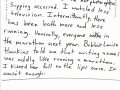 sopping occurred. I watched less
television. Intermittently, there
has been both more and less
running. Verbally, everyone walks in
the marathon next year. Bobbie Louise
Hawkins told me that being young
was oddly like running a marathon.
I kissed her full on the lips once. It
wasn't enough.